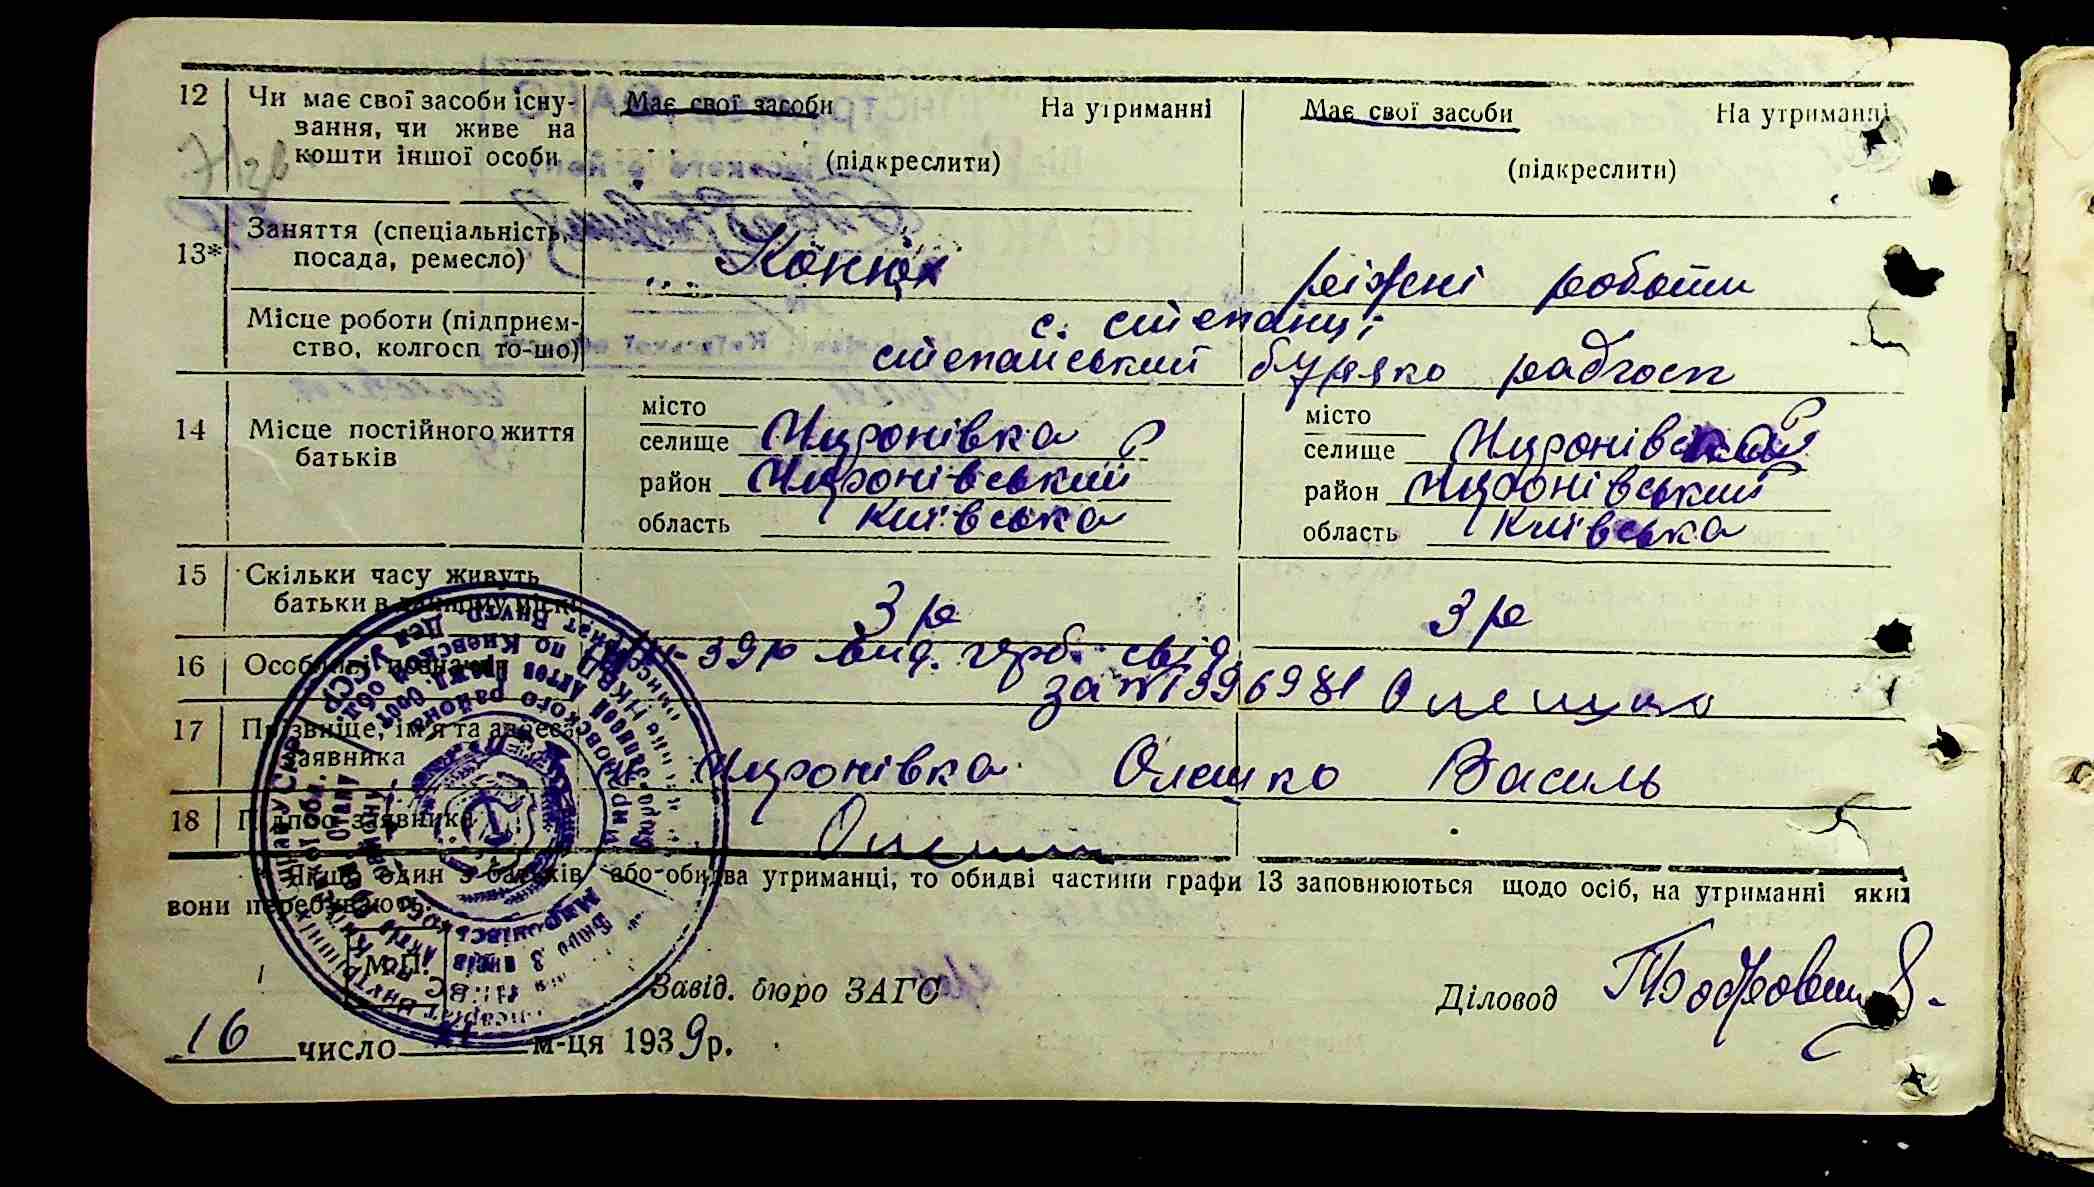 12 Чи має свої засоби існу- Має свої засоби На утриманні Має свої засоби На утриманні
вання, чи живе на
кошти іншої особи (підкреслити) (підкреслити)
13* Заняття (спеціальність, Конюх ріжні роботи
посада, ремесло)
Місце роботи (підприєм- с. степанці
ство, колгосп то-що) степанський буряко радгосп
14 Місце постійного життя місто місто
батьків селище Миронівка селище Миронівка
район Миронівський район Миронівський
область Київська область Київська
15 Скільки часу живуть
батьки в 3 р 3 р
16 39р вид. герб. свід
за №
17 Прізвище, ім'я та адреса
заявника Миронівка Олешко Василь
18 Підпис заявника
Якщо один з батьків або обидва утриманці, то обидві частини графи 13 заповнюються щодо осіб, на утриманні яких
вони перебувають.
М.П.
Завід. бюро ЗАГС Діловод
16 число м-ця 1939 р.